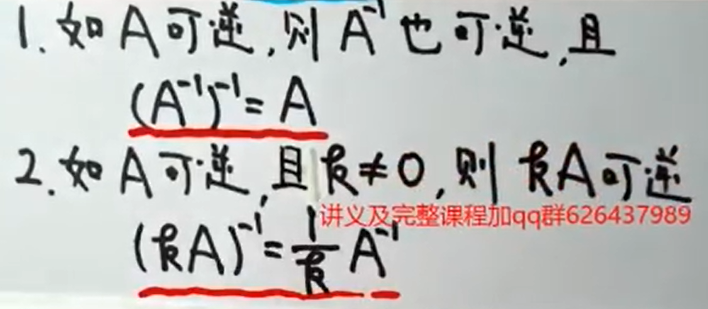 1. 如 A 可逆, 则 A⁻¹ 也可逆, 且
(A⁻¹)⁻¹ = A
2. 如 A 可逆, 且 k ≠ 0, 则 kA 可逆
讲义及完整课程加qq群626437989
(kA)⁻¹ = 1/k A⁻¹